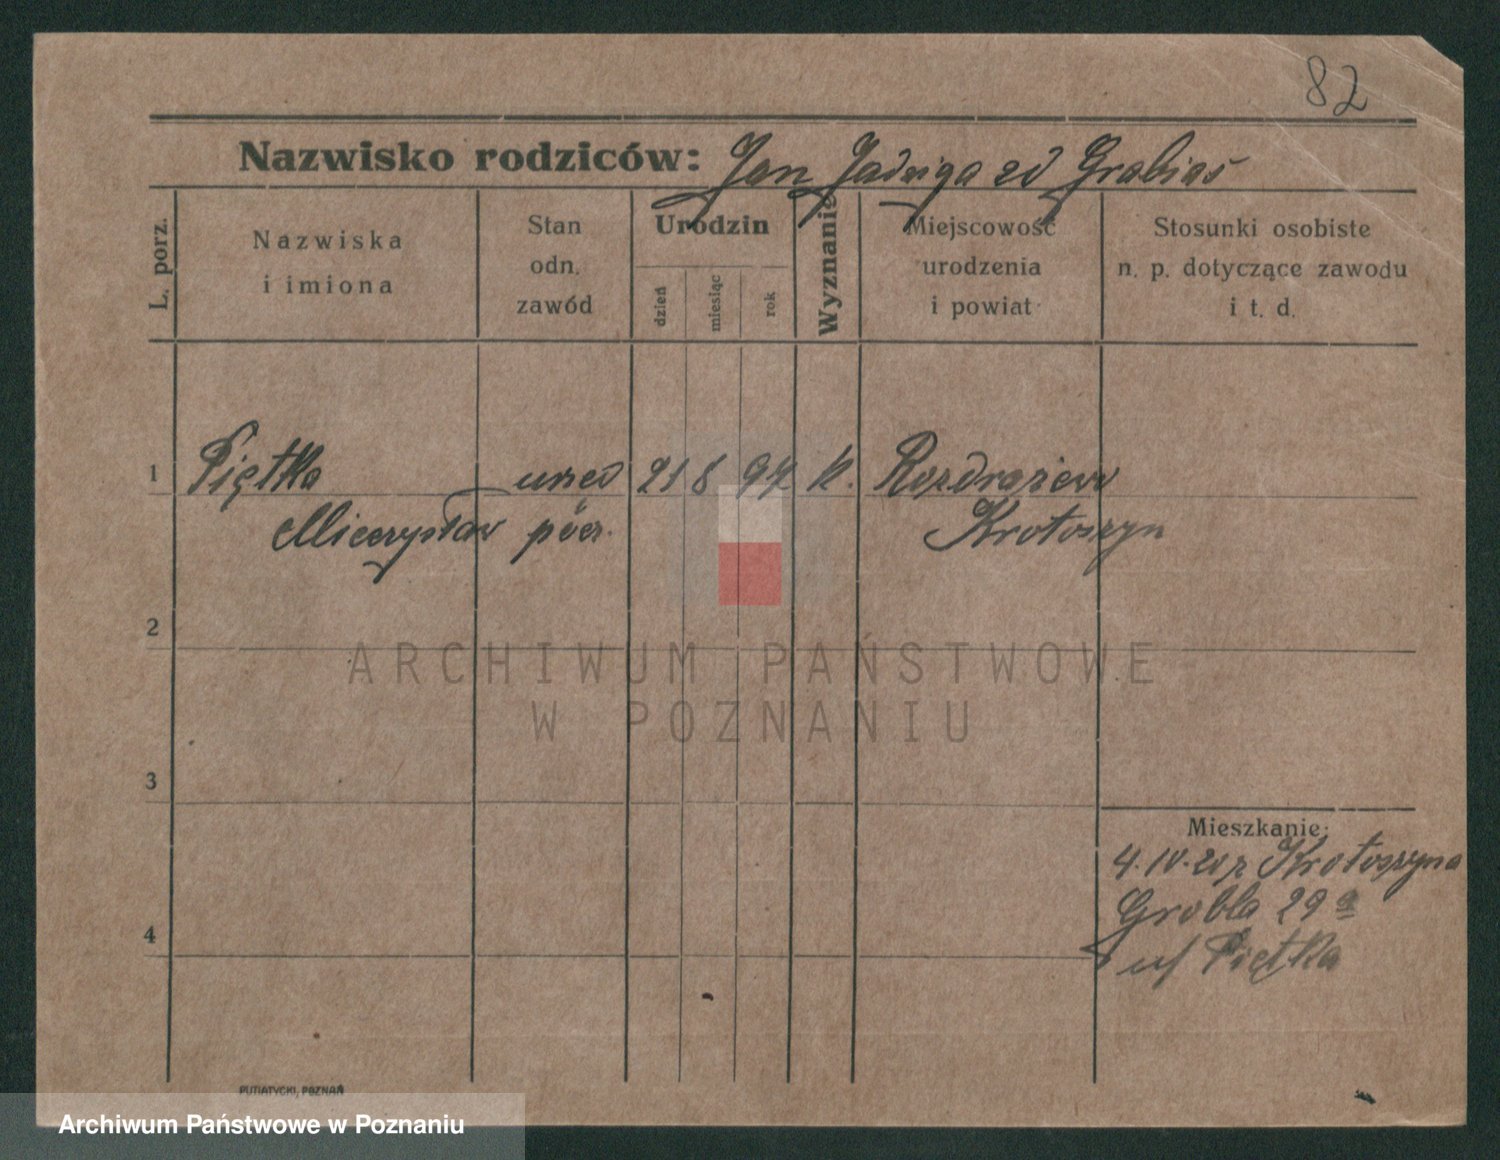 82
Nazwisko rodziców: Jan Jadwiga zd Grabias
L. porz.
Nazwiska
i imiona
Stan
odn.
zawód
Urodzin
dzień
miesiąc
rok
Wyznanie
Miejscowość
urodzenia
i powiat
Stosunki osobiste
n. p. dotyczące zawodu
i t. d.
1 Piętka urzęd 21 8 97 k. Rozdrażew
Mieczysław pocz. Krotoszyn
2
ARCHIWUM PAŃSTWOWE
W POZNANIU
3
Mieszkanie:
4. IV. 20 z Krotoszyna
Grobla 29 a
4
u/ Piętka
PUTIATYCKI, POZNAŃ
Archiwum Państwowe w Poznaniu